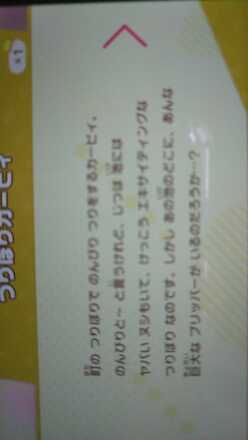 つりぼりカービィ
×1
町の つりぼりで のんびり つりをするカービィ。
のんびりと― と思うけれど、じつは 池には
ヤバい ヌシもいて、けっこう エキサイティングな
つりぼり なのです。しかし あの池のどこに、あんな
巨大な ブリッパーが いるのだろうか…?